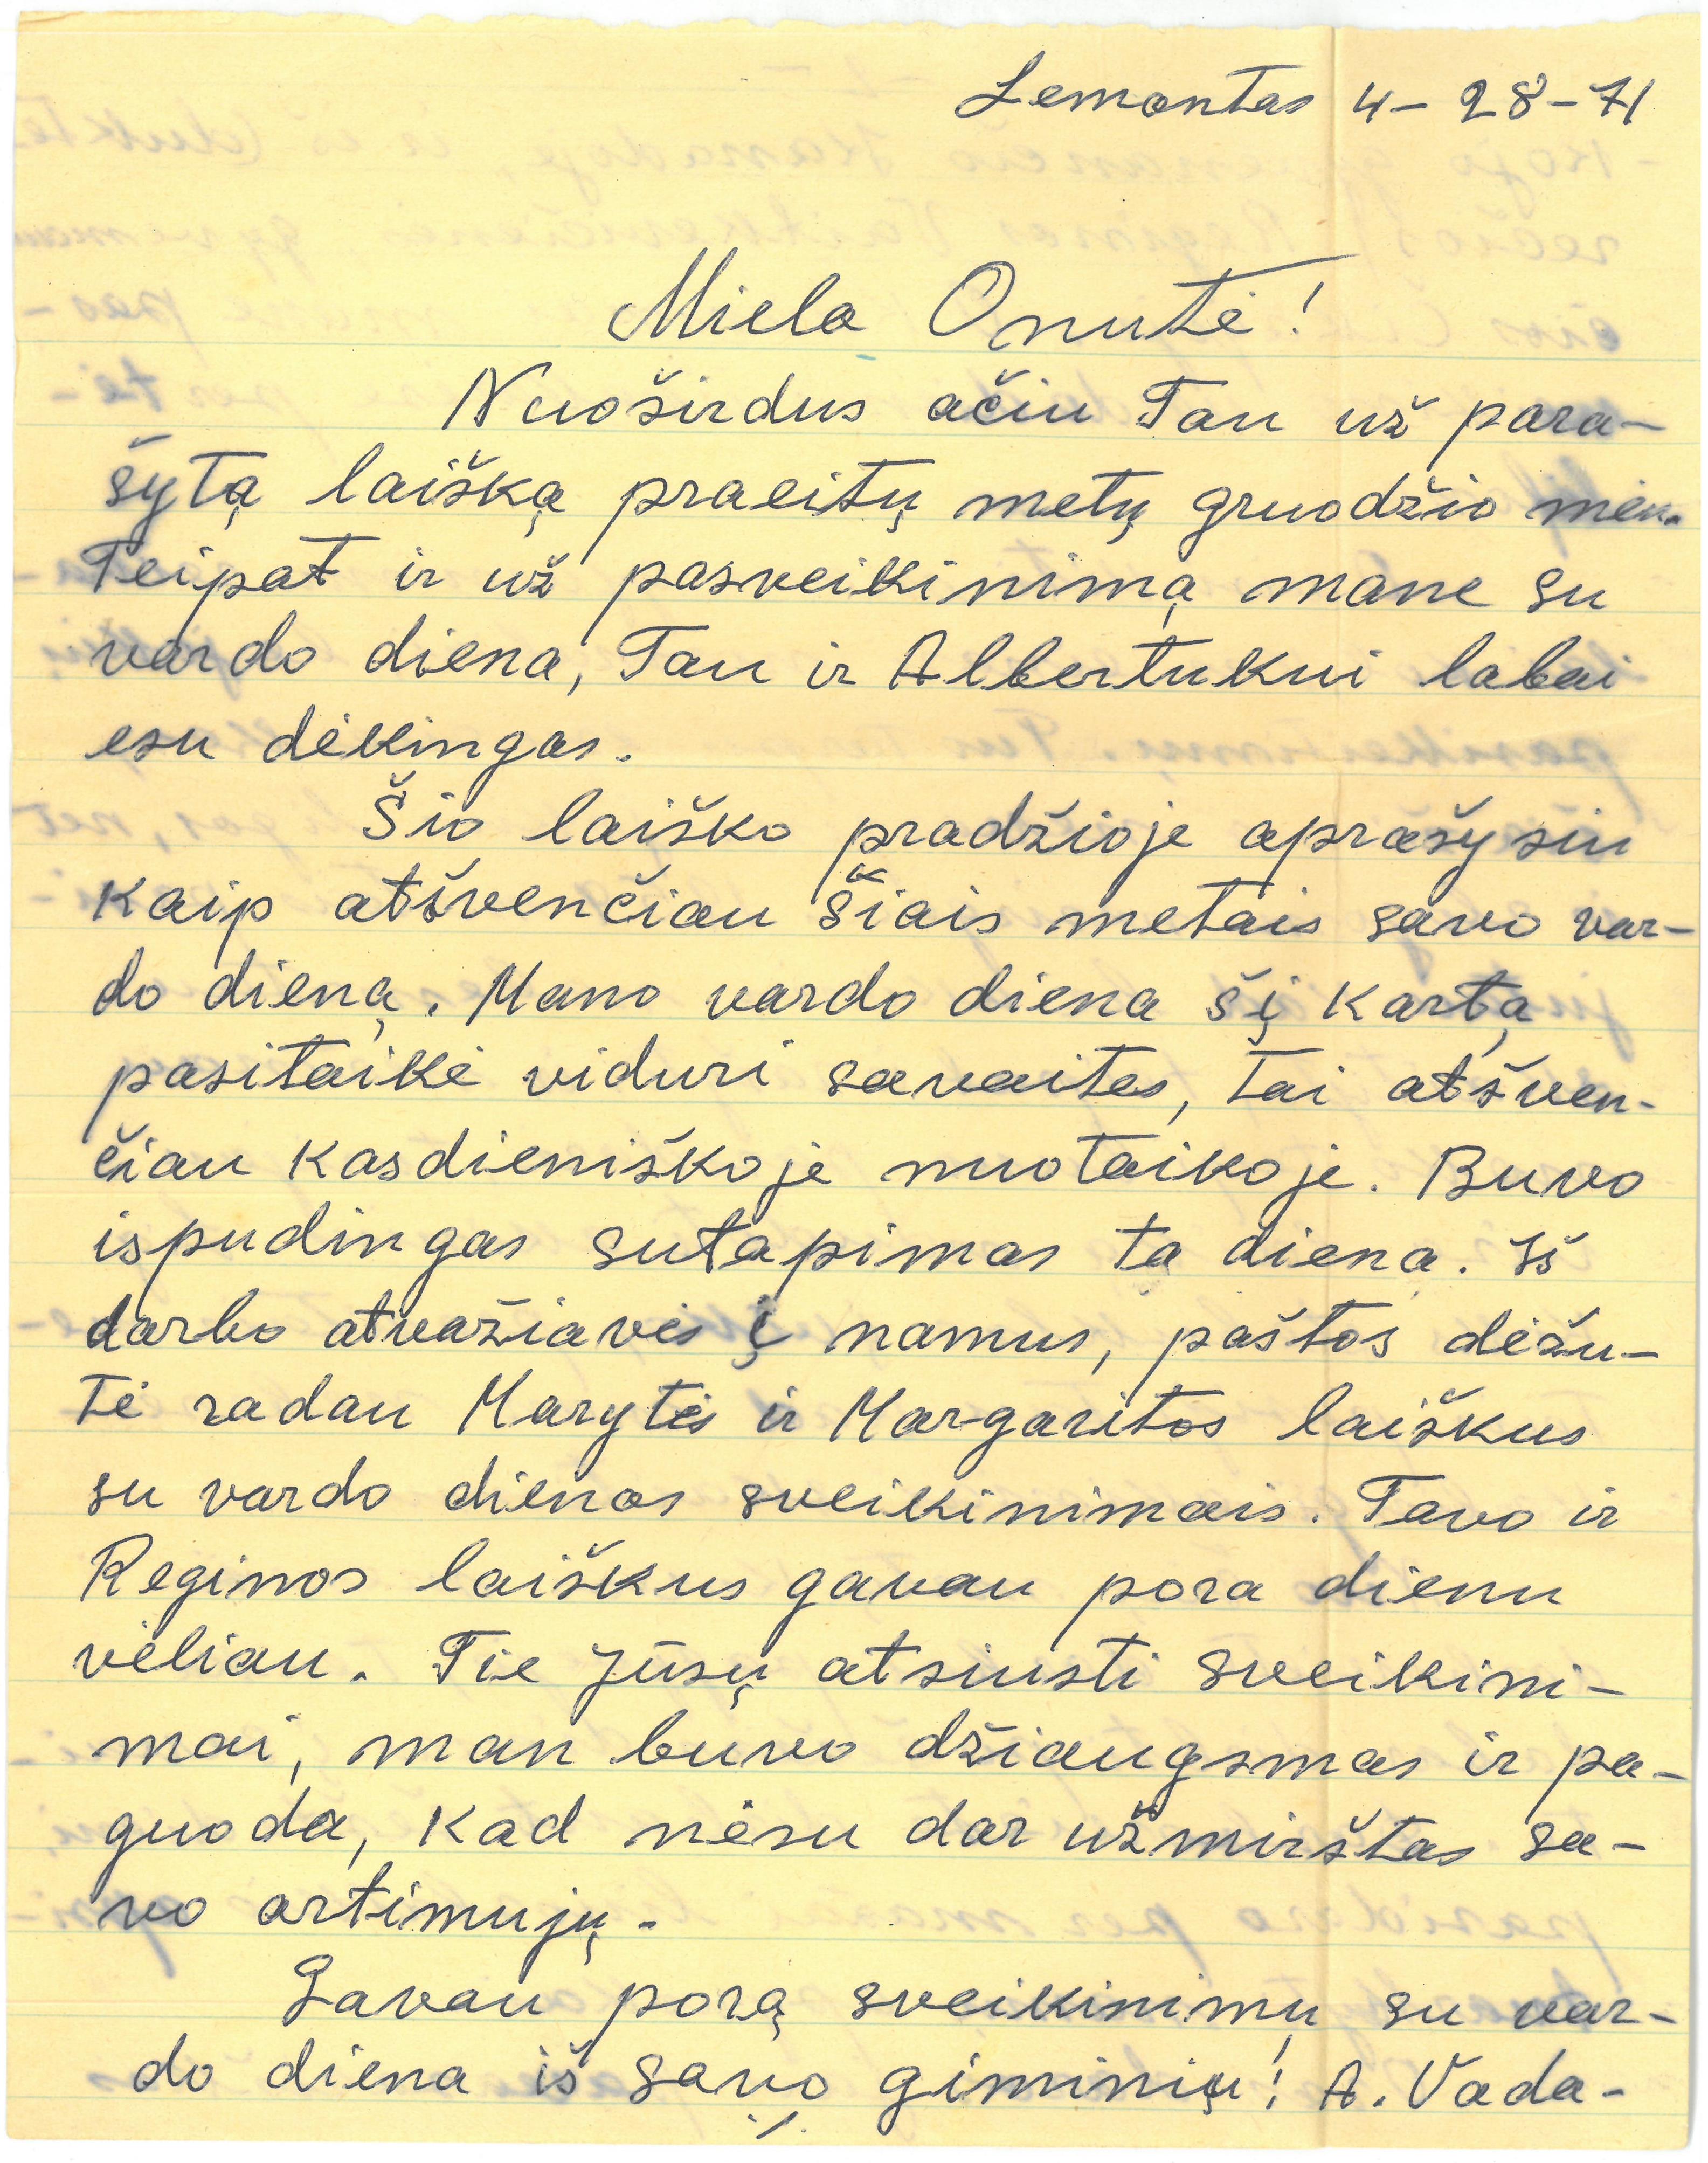 Lemontas 4-28-71
Miela Onutė!
Nuoširdus ačiu Tau už para-
šytą laišką praeitų metų gruodžio mėn.
Teipat ir už pasveikinimą mane su
vardo diena, Tau ir Albertukui labai
esu dėkingas.
Šio laiško pradžioje aprašysiu
kaip atšvenčiau šiais metais savo var-
do dieną. Mano vardo diena šį kartą
pasitaikė viduri savaites, tai atšven-
čiau kasdieniškoje nuotaikoje. Buvo
ispudingas sutapimas tą dieną. Iš
darbo atvažiavęs į namus, paštos dėžu-
tė radau Marytės ir Margaritos laiškus
su vardo dienos sveikinimais. Tavo ir
Reginos laiškus gavau pora dienu
vėliau. Tie jūsų atsiusti sveikini-
mai, man buvo džiaugsmas ir pa-
guoda, kad nėsu dar užmirštas sa-
vo artimujų.
Gavau porą sveikinimų su var-
do diena iš savo giminių: A. Vada-